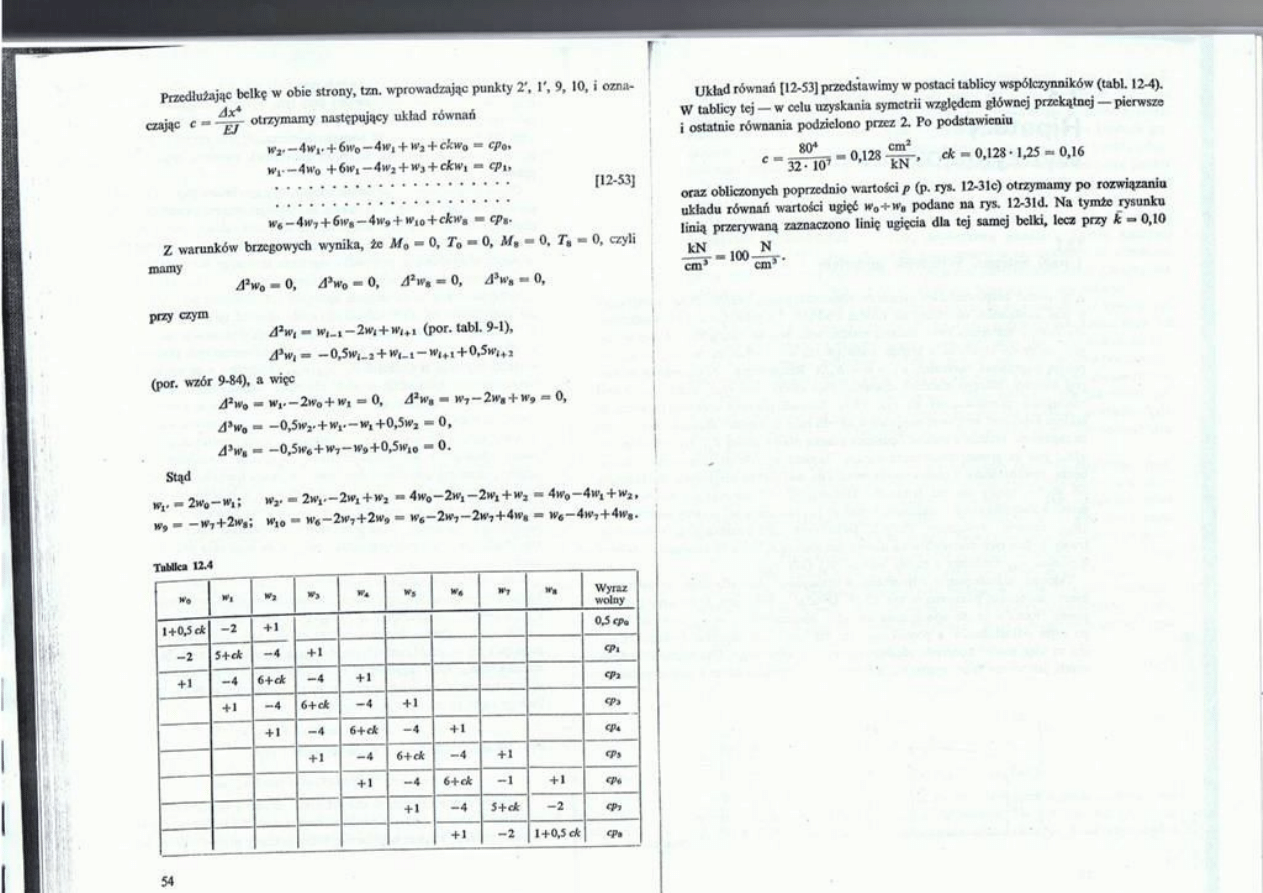 Przedłużając belkę w obie strony, tzn. wprowadzając punkty 2', 1', 9, 10, i ozna-
czając c = Δx⁴/EJ otrzymamy następujący układ równań
w₂' − 4w₁' + 6w₀ − 4w₁ + w₂ + ckw₀ = cp₀,
w₁' − 4w₀ + 6w₁ − 4w₂ + w₃ + ckw₁ = cp₁,
. . . . . . . . . . . . . . . . . . . . . . . . [12-53]
. . . . . . . . . . . . . . . . . . . . . . . .
w₆ − 4w₇ + 6w₈ − 4w₉ + w₁₀ + ckw₈ = cp₈.
Z warunków brzegowych wynika, że M₀ = 0, T₀ = 0, M₈ = 0, T₈ = 0, czyli
mamy
Δ²w₀ = 0, Δ³w₀ = 0, Δ²w₈ = 0, Δ³w₈ = 0,
przy czym
Δ²wᵢ = wᵢ₋₁ − 2wᵢ + wᵢ₊₁ (por. tabl. 9-1),
Δ³wᵢ = −0,5wᵢ₋₂ + wᵢ₋₁ − wᵢ₊₁ + 0,5wᵢ₊₂
(por. wzór 9-84), a więc
Δ²w₀ = w₁' − 2w₀ + w₁ = 0, Δ²w₈ = w₇ − 2w₈ + w₉ = 0,
Δ³w₀ = −0,5w₂' + w₁' − w₁ + 0,5w₂ = 0,
Δ³w₈ = −0,5w₆ + w₇ − w₉ + 0,5w₁₀ = 0.
Stąd
w₁' = 2w₀ − w₁; w₂' = 2w₁' − 2w₁ + w₂ = 4w₀ − 2w₁ − 2w₁ + w₂ = 4w₀ − 4w₁ + w₂,
w₉ = −w₇ + 2w₈; w₁₀ = w₆ − 2w₇ + 2w₉ = w₆ − 2w₇ − 2w₇ + 4w₈ = w₆ − 4w₇ + 4w₈.
Tablica 12.4
w₀ w₁ w₂ w₃ w₄ w₅ w₆ w₇ w₈ Wyraz
wolny
1+0,5 ck −2 +1 0,5 cp₀
−2 5+ck −4 +1 cp₁
+1 −4 6+ck −4 +1 cp₂
+1 −4 6+ck −4 +1 cp₃
+1 −4 6+ck −4 +1 cp₄
+1 −4 6+ck −4 +1 cp₅
+1 −4 6+ck −1 +1 cp₆
+1 −4 5+ck −2 cp₇
+1 −2 1+0,5 ck cp₈
54
Układ równań [12-53] przedstawimy w postaci tablicy współczynników (tabl. 12-4).
W tablicy tej — w celu uzyskania symetrii względem głównej przekątnej — pierwsze
i ostatnie równania podzielono przez 2. Po podstawieniu
c = 80⁴/(32 · 10⁷) = 0,128 cm²/kN, ck = 0,128 · 1,25 = 0,16
oraz obliczonych poprzednio wartości p (p. rys. 12-31c) otrzymamy po rozwiązaniu
układu równań wartości ugięć w₀÷w₈ podane na rys. 12-31d. Na tymże rysunku
linią przerywaną zaznaczono linię ugięcia dla tej samej belki, lecz przy k̄ = 0,10
kN/cm³ = 100 N/cm³.